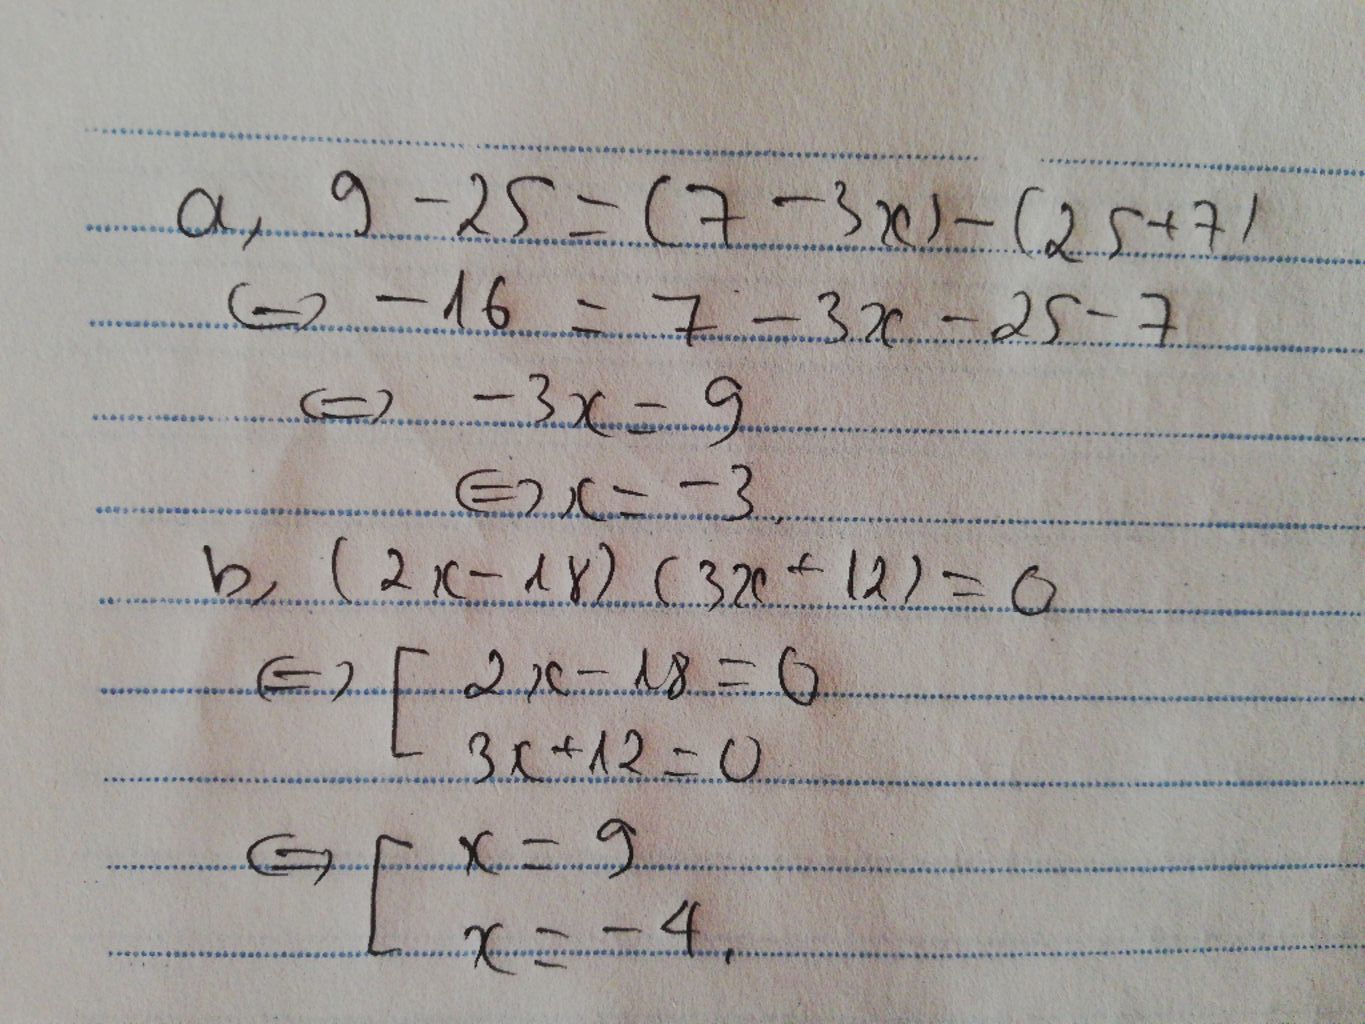 a, 9 - 25 = (7 - 3x) - (25 + 7)
⇔ -16 = 7 - 3x - 25 - 7
⇔ -3x = 9
⇔ x = -3.
b, (2x - 18) (3x + 12) = 0
⇔ [ 2x - 18 = 0
3x + 12 = 0
⇔ [ x = 9
x = -4.